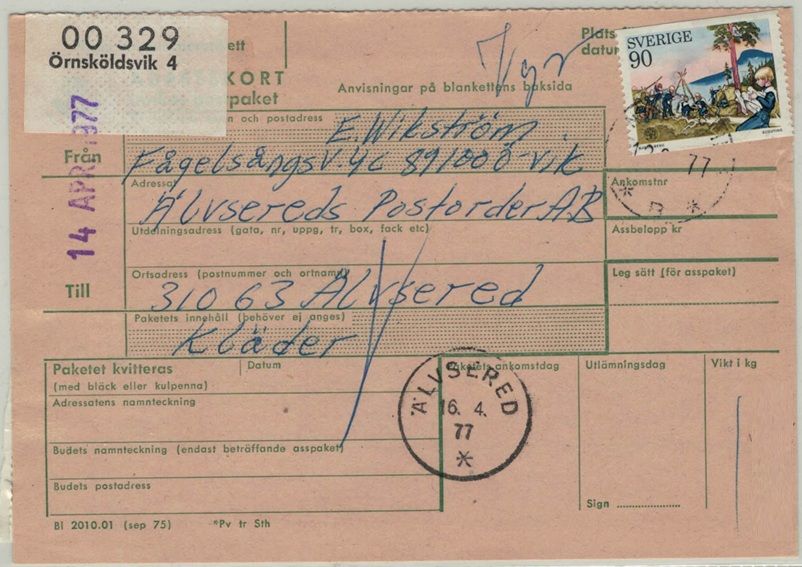 00 329
Örnsköldsvik 4
SVERIGE
90
SCOUTING
KORT
Anvisningar på blankettens baksida
Vgr
14 APR 1977
Från
och postadress
E. Wikström
Fågelsångsv. 4c 89100 Ö-vik
77
Adressat
Älvsereds Postorder AB
Ankomstnr
Utdelningsadress (gata, nr, uppg, tr, box, fack etc)
Assbelopp kr
Till
Ortsadress (postnummer och ortnamn)
310 63 Älvsered
Leg sätt (för asspaket)
Paketets innehåll (behöver ej anges)
Kläder
Paketet kvitteras
(med bläck eller kulpenna)
Datum
Paketets ankomstdag
Utlämningsdag
Vikt i kg
Adressatens namnteckning
ÄLVSERED
16. 4.
77
Budets namnteckning (endast beträffande asspaket)
Budets postadress
Sign
Bl 2010.01 (sep 75) *Pv tr Sth